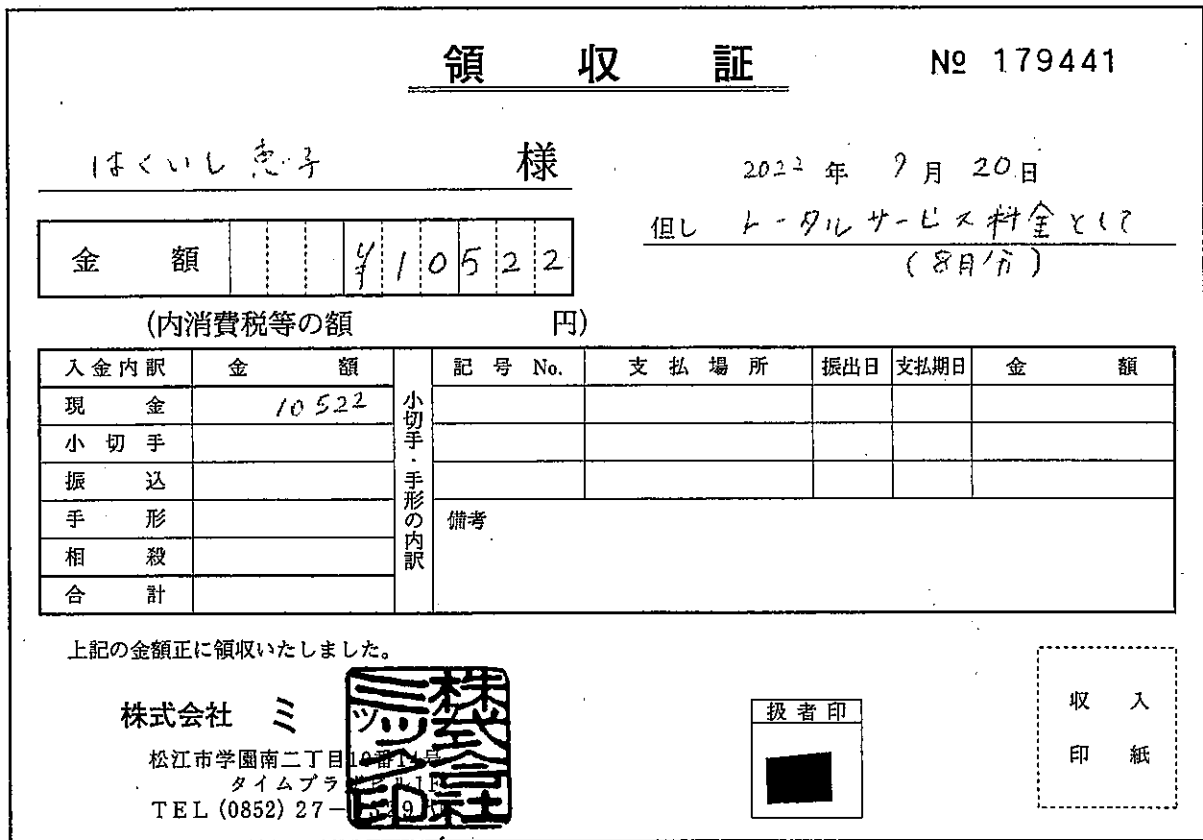 領収証
№ 179441
はくいし恵子 様
2022年 9月 20日
但し トータルサービス料金として
(8月分)
金額 ¥10522
(内消費税等の額 円)
入金内訳 金額
現金 10522
小切手
振込
手形
相殺
合計
小切手・手形の内訳
記号 No. 支払場所 振出日 支払期日 金額
備考
上記の金額正に領収いたしました。
株式会社 ミック
松江市学園南二丁目10番14号
タイムプラザビル1F
TEL (0852) 27-
株式会社ミック印
扱者印
収入
印紙